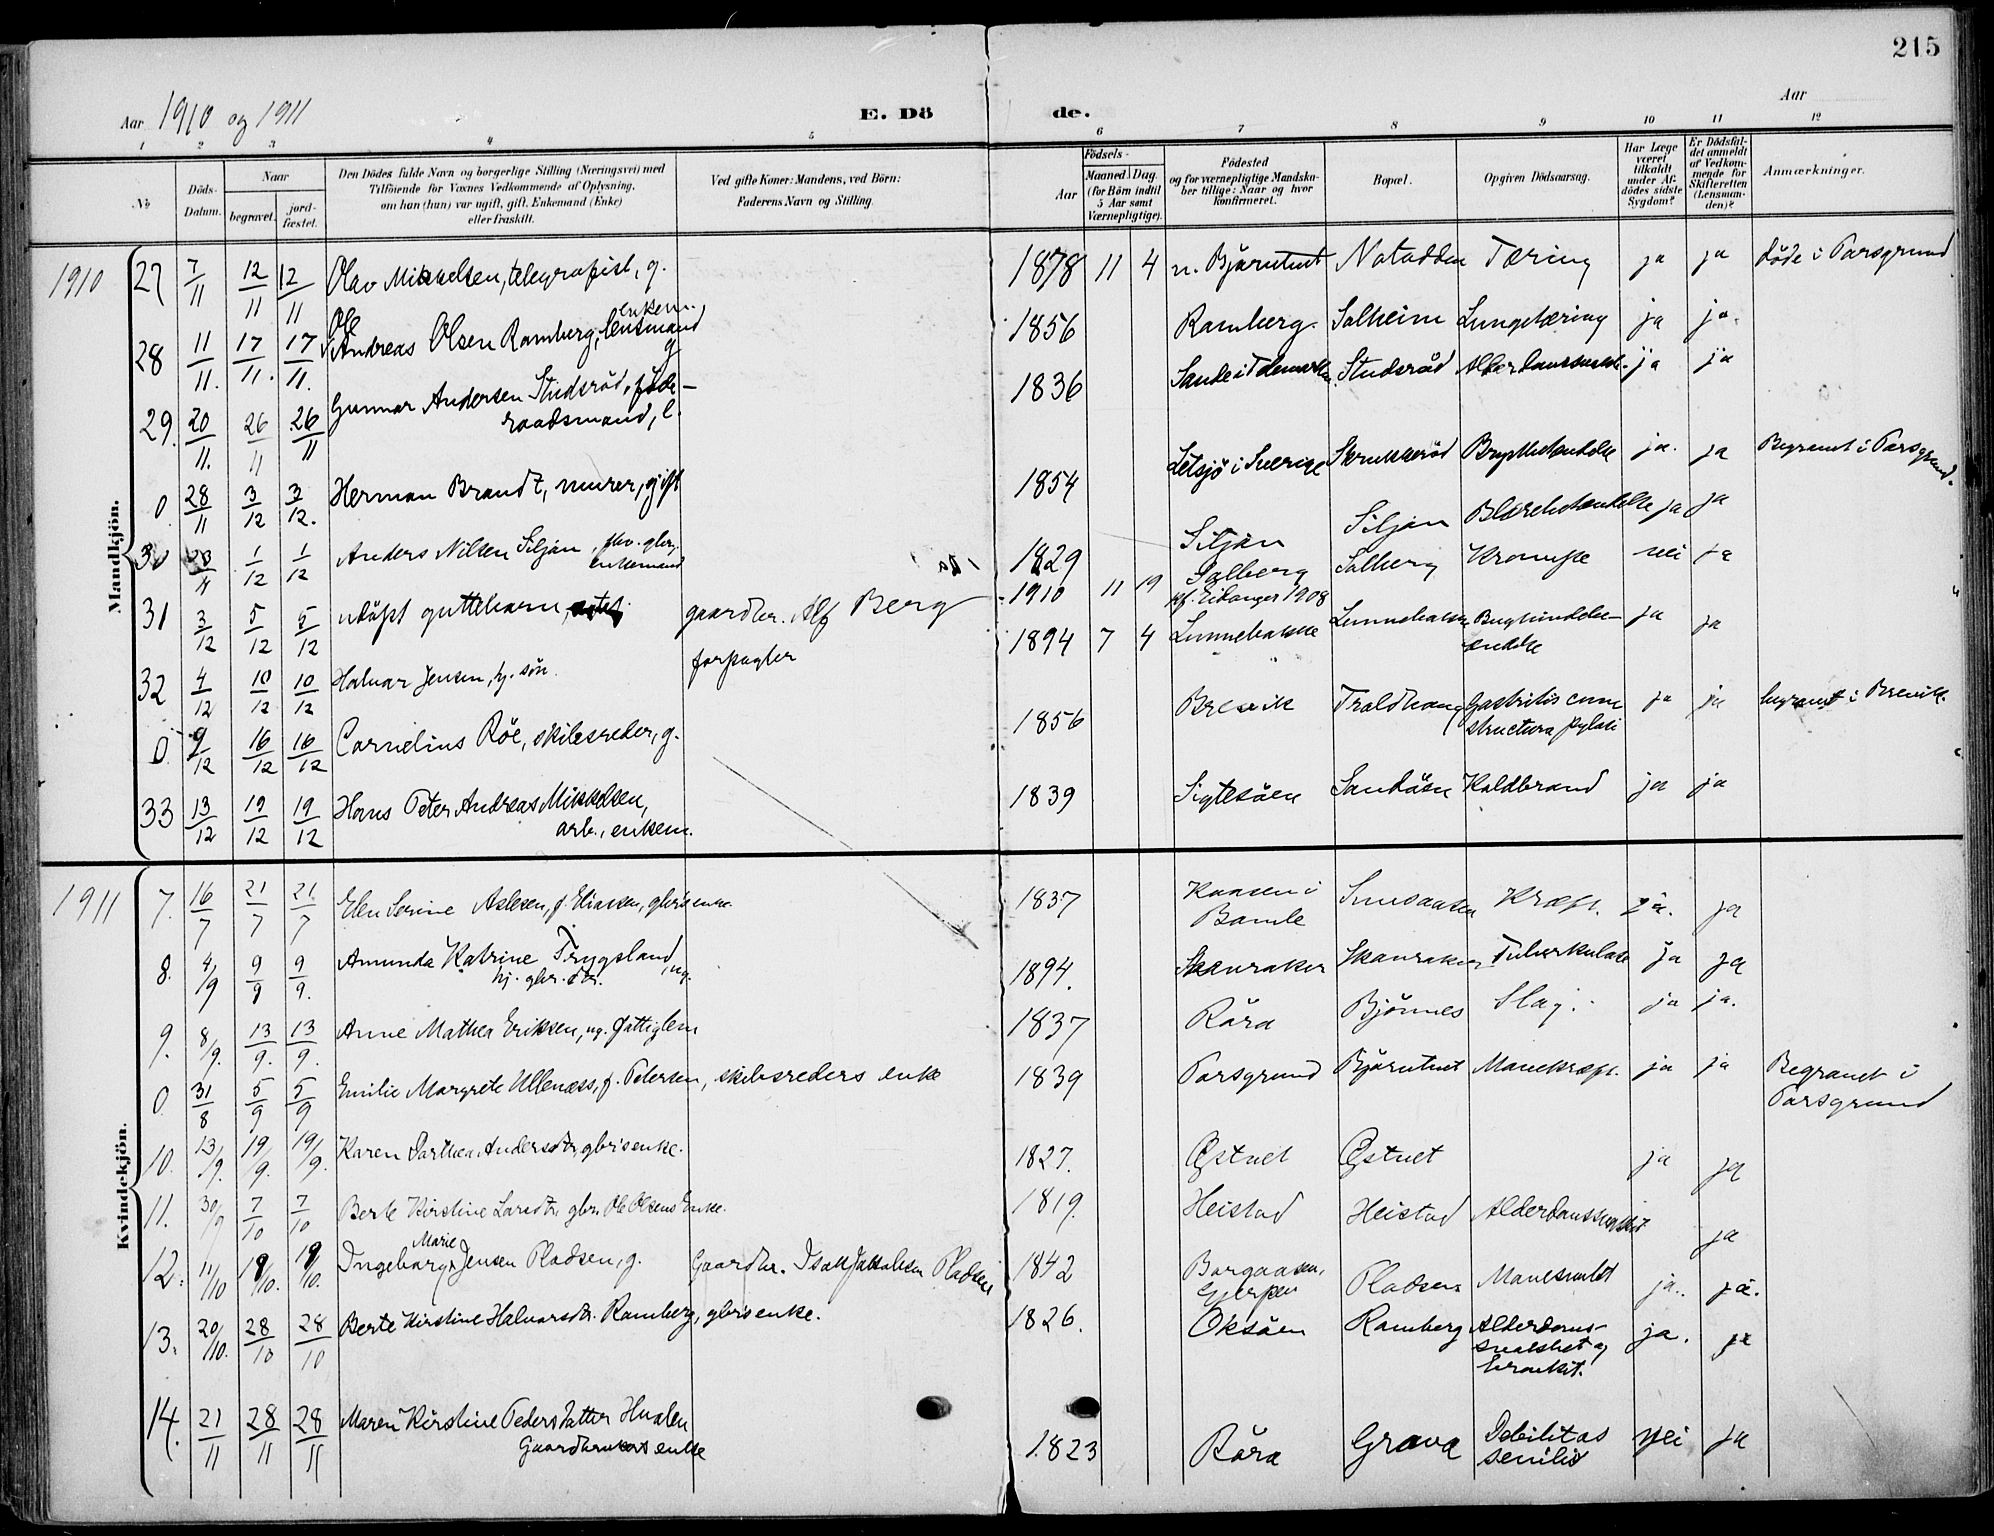 215
Aar 1910 og 1911
E. Dö de.
Aar
1 2 3 4 5 6 7 8 9 10 11 12
No
Döds-Datum.
Naar
begravet.
jord-fæstet.
Den Dödes fulde Navn og borgerlige Stilling (Næringsvei) med
Tilföiende for Voxnes Vedkommende af Oplysning,
om han (hun) var ugift, gift, Enkemand (Enke)
eller fraskilt.
Ved gifte Koner: Mandens, ved Börn:
Faderens Navn og Stilling.
Födsels-
Aar
Maaned Dag.
(for Börn indtil
5 Aar samt
Værnepligtige).
Födested
og for værnepligtige Mandska-
ber tillige: Naar og hvor
konfirmeret.
Bopæl.
Opgiven Dödsaarsag.
Har Læge
været
tilkaldt
under Af-
dödes sidste
Sygdom?
Er Dödsfal-
det anmeldt
af Vedkom-
mende for
Skifteretten
(Lensman-
den)?
Anmærkninger.
Mandkjön.
1910 27 7/11 12/11 12/11 Olav Mikkelsen, telegrafist, g. 1878 11 4 n. Bjørntvet Notodden Tæring ja ja døde i Porsgrund
28 11/11. 17/11. 17/11. Ole Andreas Olsen Ramberg, lensmand enkem. g 1856 Ramberg. Solheim Lungetæring ja ja.
29. 20/11. 26/11 26/11 Gunnar Andersen Studsrød, føde-
raadsmand, e. 1836 Sande i Telemarken Studsrød ja ja
0 28/11 3/12 3/12. Herman Brandt, murer, gift 1854 i Sverige Skrukkerød ja. ja Begravet i Porsgrund.
30 1/12 1/12 Anders Nilsen Siljan, enkemand 1829 Siljan Siljan ja ja
31 3/12 5/12 5/12 udøpt guttebarn, gaardbr. Alf Berg 1910 11 19 Solberg Solberg Krampe nei ja
kf. Eidanger 1908
32 4/12 10/12 10/12 Halvar Jensen, hj. søn forpagter 1894 7 4 Lunnebakke Lunnebakke ja ja
0. 9/12 16/12 16/12 Cornelius Röe, skibsreder, g. 1856 Brevik Traldhaug Gastritis cum
structura pylori ja ja begravet i Brevik.
33 13/12 19/12 19/12 Hans Peter Andreas Mikkelsen,
arb., enkem. 1839 Sigtesøen Sandøen Koldbrand ja ja
Kvindekjön.
1911 7. 16/7 21/7 21./7 Elen Serine Aslesen, f. Eliassen, gbrs enke. 1837 Kaasen i
Bamle Kræft. ja. ja
8. 4/9 9/9 9/9. Amunda Katrine Trygsland, ug.
hj. gbr. dtr. 1894. Skavraker Skavraker Tuberkulose ja ja
9. 8/9. 13/9. 13/9. Anne Mathea Eriksen, ug. fattiglem 1837 Röra Bjønnes Slag. ja ja.
0 31/8 5/9 5/9 Emilie Margrete Ullenæss, f. Petersen, skibsreders enke 1839 Porsgrund Bjørntvet Mavekræft. ja ja Begravet i
Porsgrund
10. 13/9. 19/9. 19/9. Karen Dorthea Andersdtr, gbrs enke. 1827. Østvet Østvet ja ja
11. 30/9 7/10 7/10 Berte Kirstine Larsdtr, gbr. Ole Olsens Enke. 1819. Heistad Heistad ja
12. 11/10 19/10. 19/10. Ingeborg Marie Jensen Pladsen, g. Gaardbr. Isak Jakobsen Pladsen 1842 Borgaasen,
Gjerpen Pladsen ja.. ja.
13. 20/10. 28/10 28/10 Berte Kirstine Halvorsdtr. Ramberg, gbrs enke. 1826. Oksøen Ramberg Alderdoms-
svakhet og
bronkit. ja. ja
14. 21/11 28/11 28/11 Maren Kirstine Pedersdatter Hvalen
Gaardbrukers enke 1823 Röra Grava Debilitas
senilis nei ja